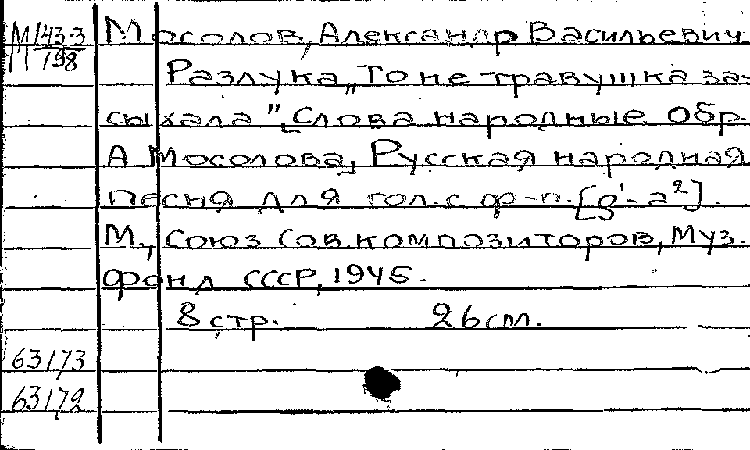 М 143-3 Мосолов, Александр Васильевич
М 198
Разлука „То не травушка за-
сыхала", Слова народные Обр.
А Мосолова, Русская народная
песня для гол. с ф-п. [g¹-a²].
М., Союз Сов. композиторов, Муз.
фонд СССР, 1945.
8 стр. 26 см.
63173
63172